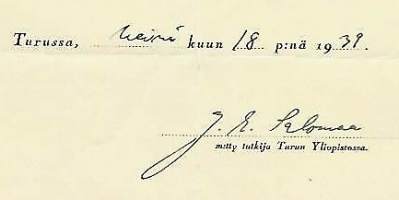 Turussa, heinä kuun 18 p:nä 1939.
J. E. Salomaa
mtty tutkija Turun Yliopistossa.